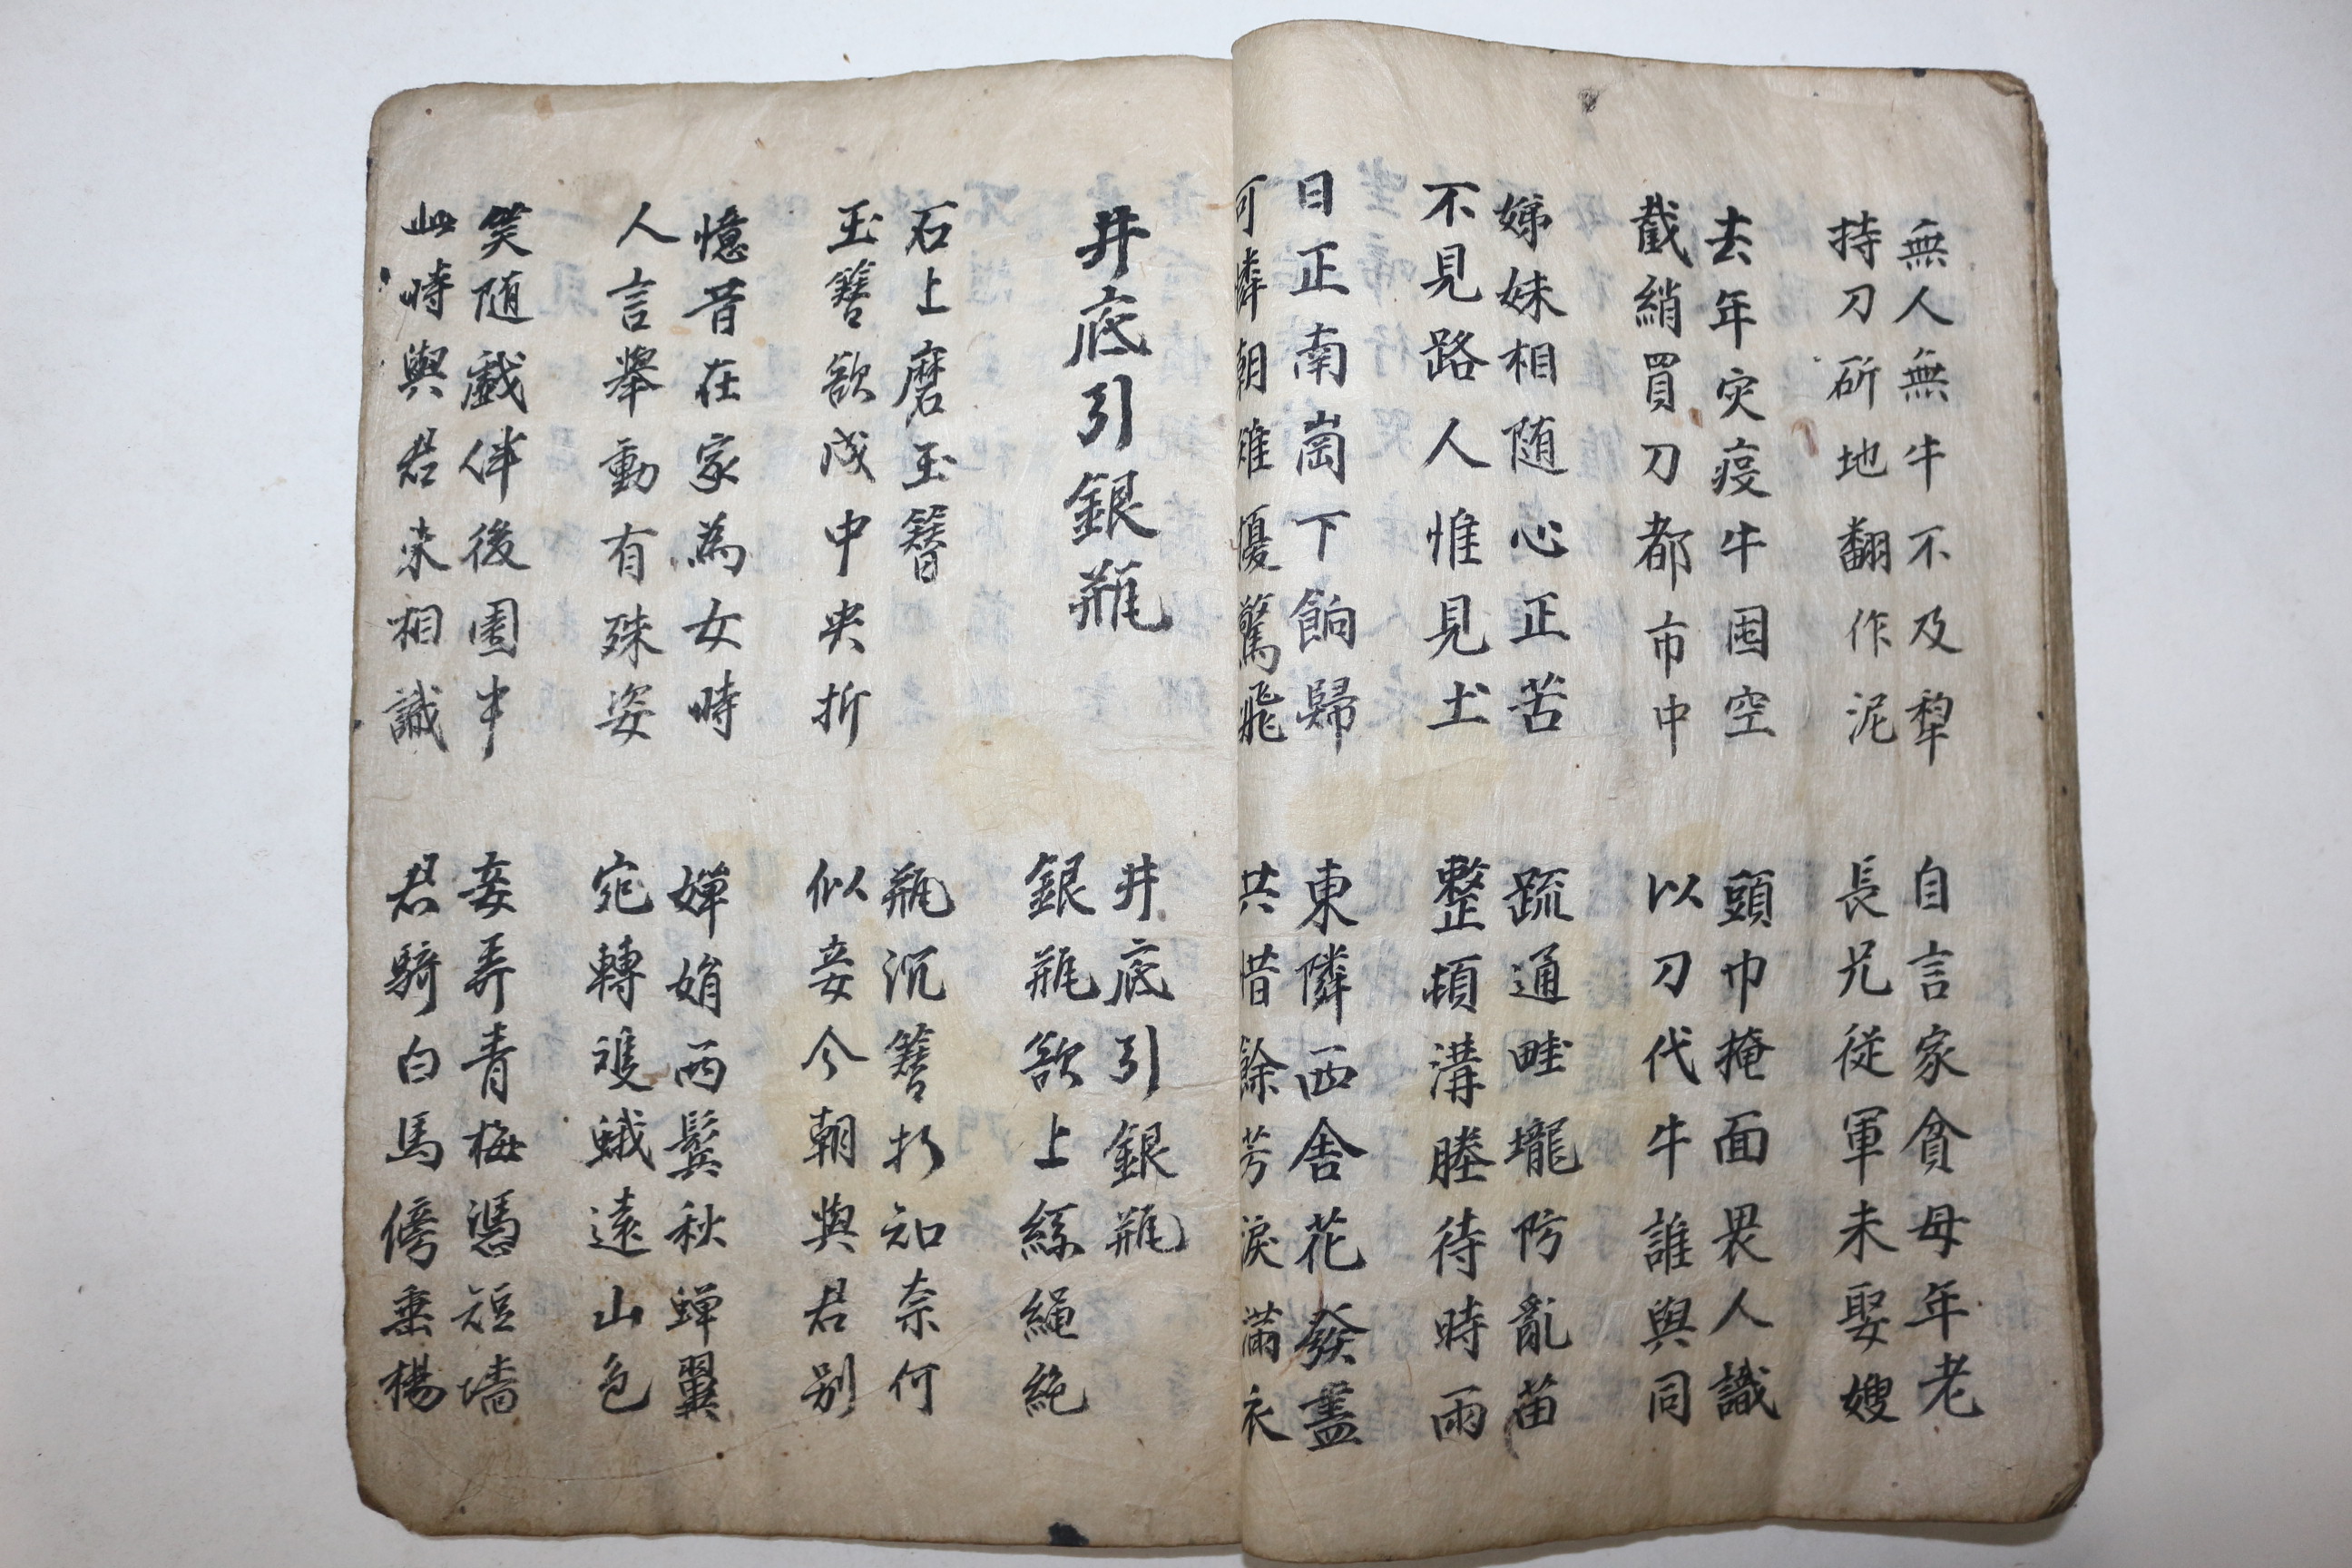 無人無牛不及犁
持刀斫地翻作泥
自言家貧母年老
長兄従軍未娶嫂
去年灾疫牛囤空
截綃買刀都市中
頭巾掩面畏人識
以刀代牛誰與同
娣妹相随心正苦
不見路人惟見土
疏通畦壠防亂苗
整頓溝塍待時雨
日正南崗下餉歸
可憐朝雉擾驚飛
東隣西舍花發盡
共惜餘芳淚滿衣
井底引銀瓶
井底引銀瓶
銀瓶欲上絲繩絶
石上磨玉簪
玉簪欲成中央折
瓶沉簪折知奈何
似妾今朝與君别
憶昔在家為女時
人言舉動有殊姿
嬋娟両鬂秋蟬翼
宛轉雙蛾遠山色
笑随戲伴後園中
此時與君未相識
妾弄青梅憑短墻
君騎白馬傍垂楊